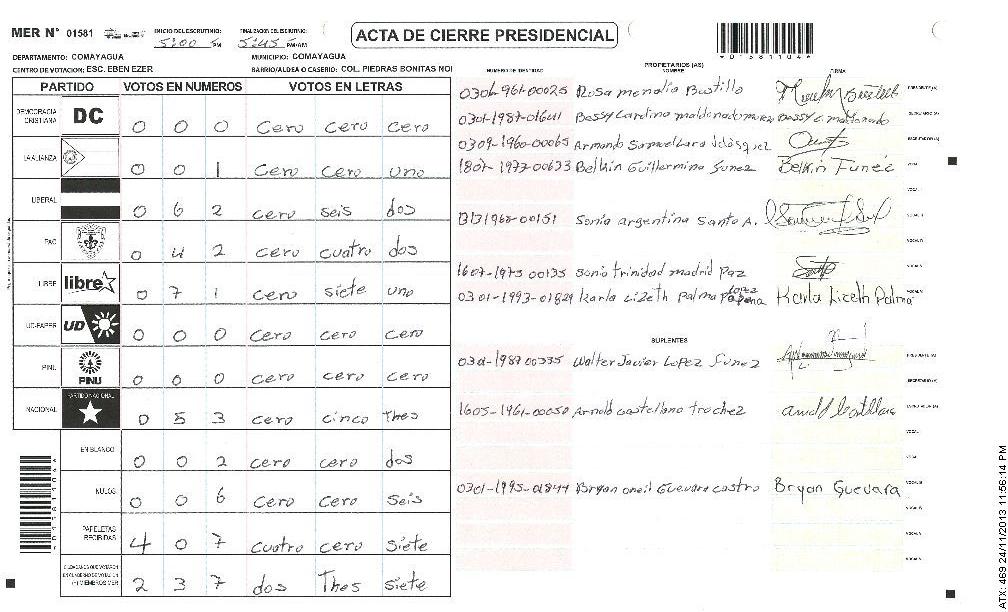 MER N° 01581 INICIO DEL ESCRUTINIO: 5:00 PM FINALIZACION DEL ESCRUTINIO: 5:45 PM/AM
ACTA DE CIERRE PRESIDENCIAL
*01581104*
DEPARTAMENTO: COMAYAGUA MUNICIPIO: COMAYAGUA
CENTRO DE VOTACION: ESC. EBEN EZER BARRIO/ALDEA O CASERIO: COL. PIEDRAS BONITAS NO
PARTIDO VOTOS EN NUMEROS VOTOS EN LETRAS
DEMOCRACIA CRISTIANA DC 0 0 0 cero cero cero
LA ALIANZA 0 0 1 cero cero uno
LIBERAL 0 6 2 cero seis dos
PAC 0 4 2 cero cuatro dos
LIBRE libre 0 7 1 cero siete uno
UD-FAPER UD 0 0 0 cero cero cero
PINU PINU 0 0 0 cero cero cero
NACIONAL PARTIDO NACIONAL 0 5 3 cero cinco Thes
EN BLANCO 0 0 2 cero cero dos
NULOS 0 0 6 cero cero seis
PAPELETAS RECIBIDAS 4 0 7 cuatro cero siete
CIUDADANOS QUE VOTARON EN CUADERNO DE VOTACION (+) MIEMBROS MER 2 3 7 dos Thes siete
PROPIETARIOS (AS)
NUMERO DE IDENTIDAD NOMBRE FIRMA
Rosa Bustillo PRESIDENTE (A)
0301-1987-01641 Bessy Carolina maldonado Bessy c maldonado SECRETARIO (A)
0309-1960-00065 Armando Samuel Lara Velásquez ESCRUTADOR (A)
1807-1977-00633 Belkin Guillermina funez Belkin Funéc VOCAL I
VOCAL II
Sonia argentina Santo A. VOCAL III
VOCAL IV
1607-1975 00135 Sonia trinidad madrid Paz VOCAL V
0301-1993-01829 Karla Lizeth Palma Karla Liceth Palma VOCAL VI
SUPLENTES
Walter Javier Lopez Funez PRESIDENTE (A)
SECRETARIO (A)
1605-1961-00050 Arnold castellano trochez ESCRUTADOR (A)
VOCAL I
VOCAL II
0301-1995-01844 Bryan oneil Guevara castro Bryan Guevara VOCAL III
VOCAL IV
VOCAL V
VOCAL VI
ATX: 469 24/11/2013 11:56:14 PM